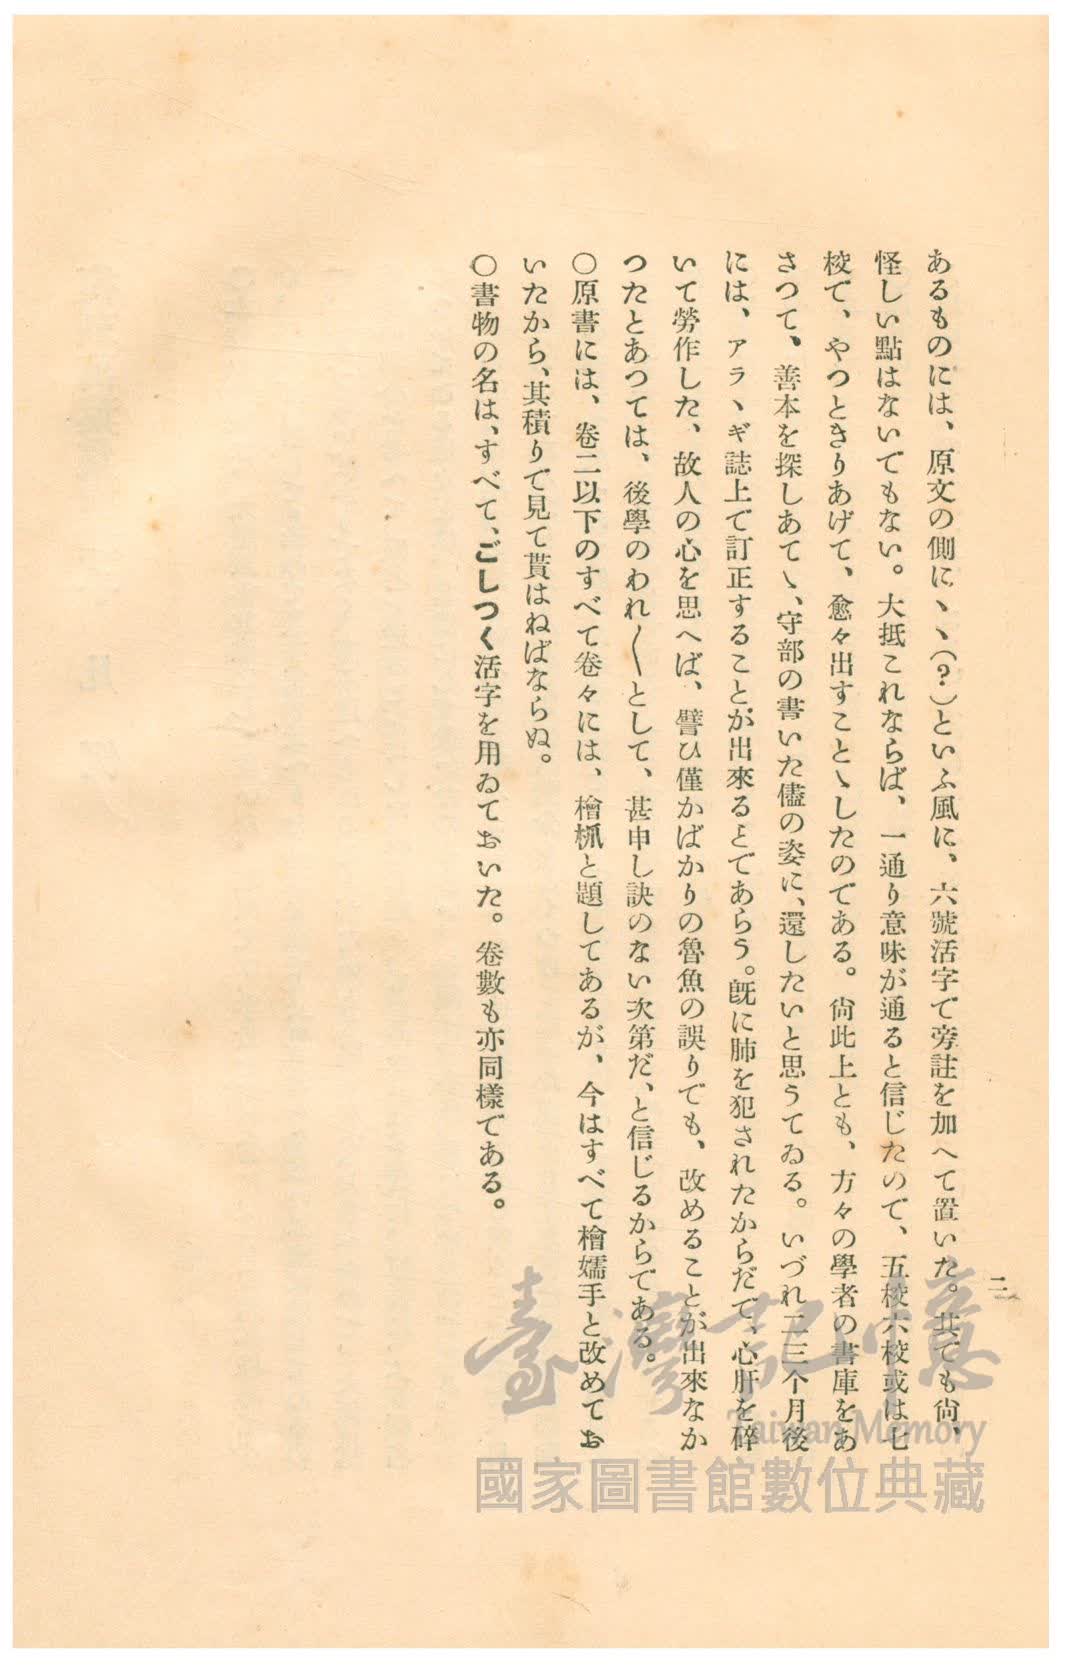 二
あるものには、原文の側に、、(?)といふ風に、六號活字で旁註を加へて置いた。其でも尙、
怪しい點はないでもない。大抵これならば、一通り意味が通ると信じたので、五校六校或は七
校で、やつときりあげて、愈々出すことゝしたのである。尙此上とも、方々の學者の書庫をあ
さつて、善本を探しあてゝ、守部の書いた儘の姿に、還したいと思うてゐる。いづれ二三个月後
には、アラヽギ誌上で訂正することが出來るとであらう。旣に肺を犯されたからだで、心肝を碎
いて勞作した、故人の心を思へば、譬ひ僅かばかりの魯魚の誤りでも、改めることが出來なか
つたとあつては、後學のわれ〳〵として、甚申し訣のない次第だ、と信じるからである。
○原書には、卷二以下のすべて卷々には、檜㭰と題してあるが、今はすべて檜嬬手と改めてお
いたから、其積りで見て貰はねばならぬ。
○書物の名は、すべて、ごしつく活字を用ゐておいた。卷數も亦同樣である。
臺灣記憶
Taiwan Memory
國家圖書館數位典藏